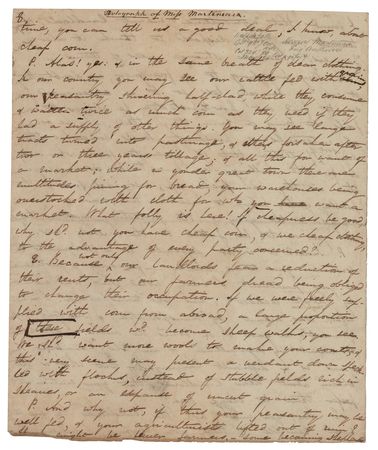 8,
Autograph of Miss Martineau.
time, you can tell us a good deal, I know, about
cheap corn.
P. Alas! yes: & in the same breath of dear clothing.
In our country, you may see our cattle fed with grain,
our peasantry shivering half-clad while they consume
& twice as much corn as they need if they
had a supply of other things. You may see large
tracts turned into pasturage, & others forsaken after
two or three years tillage; & all this for want of
a market: while in yonder great town there are
multitudes pining for bread, your warehouses being
overstocked with cloth for want a
market. What folly is here! If cheapness be good,
why shd. not you have cheap corn, & we cheap clothing,
to the advantage of every party concerned?
E. Because not only our landlords fear a reduction of
their rents, but our farmers dread being obliged
to change their occupation. If we were freely sup-
plied with corn from abroad, a large proportion
of these fields wd. become sheep walks, you see.
We shd. want more wool to make your
this very scene may present a verdant down
led with flocks, instead of stubble fields rich in
sheaves, or an expanse of uncut grain.
P. And why not, if thus your peasantry may be
well fed, & your agriculturists lifted out of
might be fewer farmers, - some becoming